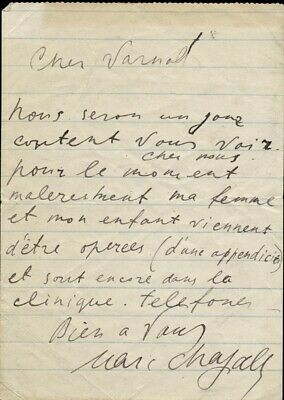 8
Cher Varnot
Nous seron un jour
content vous voir
chez nous.
pour le moment
maleresment ma femme
et mon enfant viennent
d'être operées (d'une appendicit)
et sont encore dans la
clinique. telefones
Bien a vous
Marc Chagall